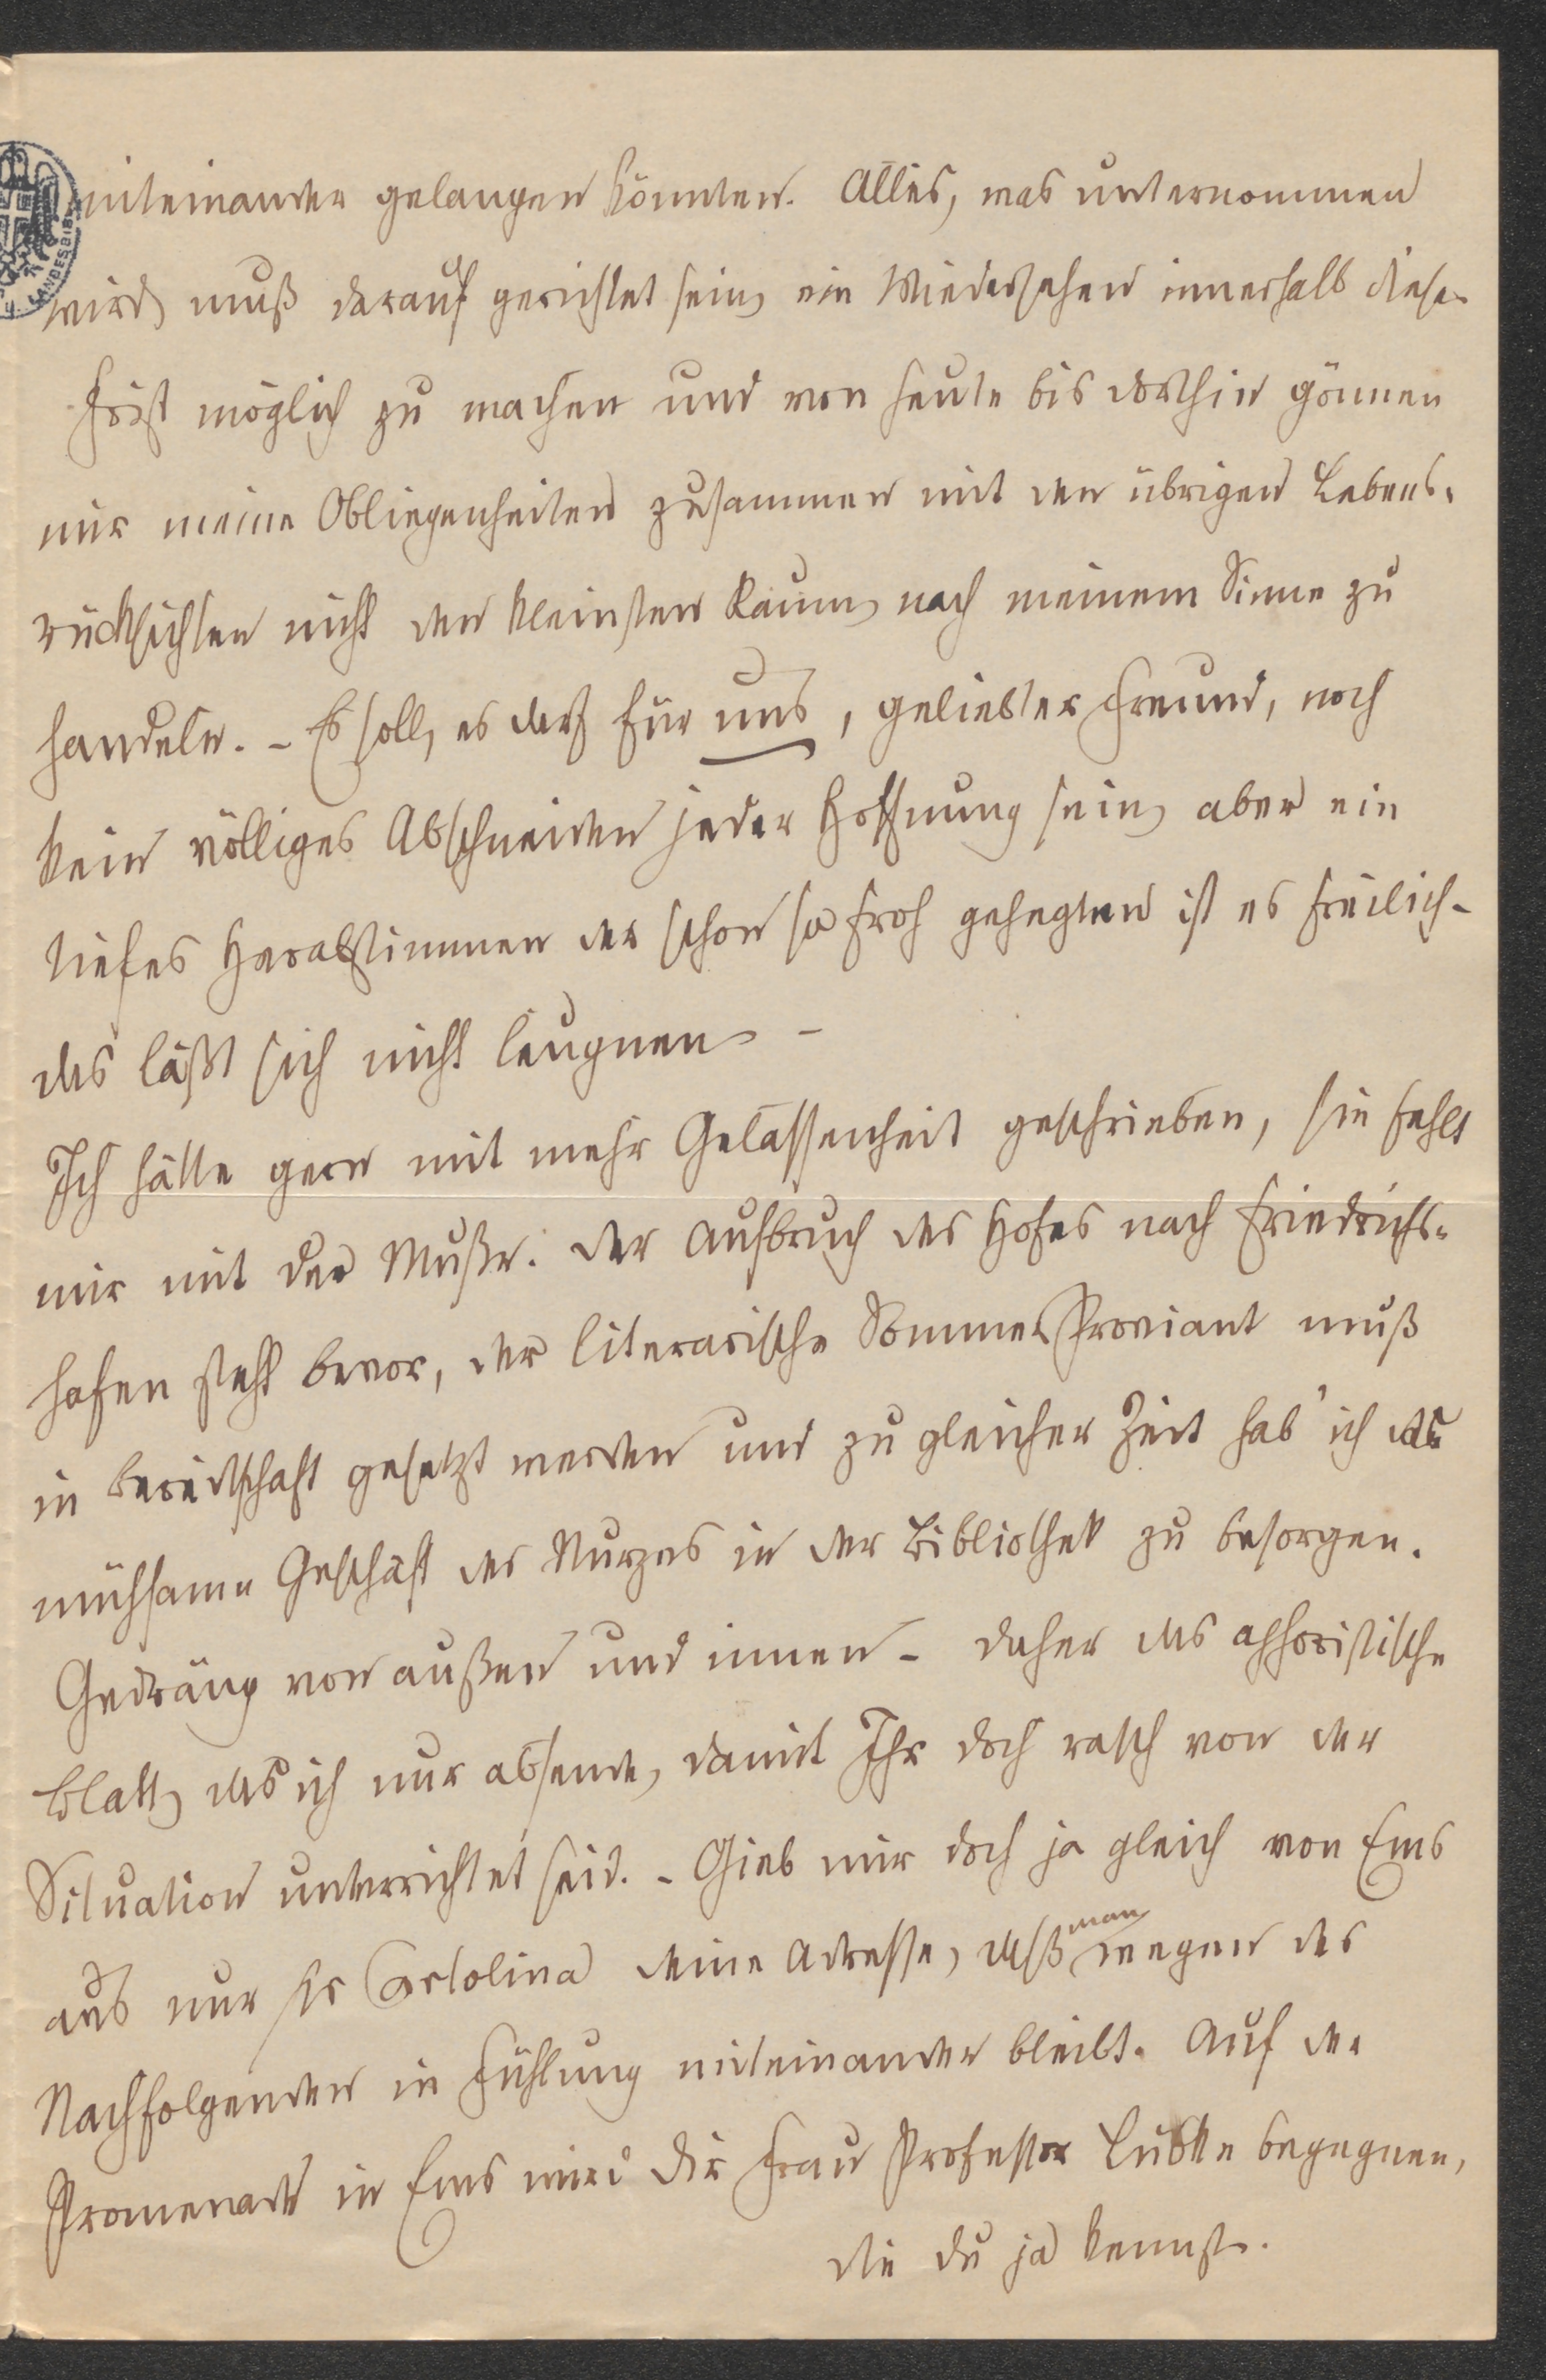 miteinander gelangen könnten. Alles, was unternommen
wird, muß darauf gerichtet sein, ein Wiedersehen innerhalb dieser
Frist möglich zu machen und von heute bis dorthin gönnen
mir meine Obliegenheiten zusammen mit den übrigen Lebens-
rücksichten nicht den kleinsten Raum, nach meinem Sinne zu
handeln. – Es soll, es darf für uns, geliebter Freund, noch
kein völliges Abschneiden jeder Hoffnung sein, aber ein
tiefes Herabstimmen der schon so froh gehegten ist es freilich –
das läßt sich nicht läugnen –
Ich hätte gern mit mehr Gelassenheit geschrieben, sie fehlt
mir mit der Muße. Der Aufbruch des Hofes nach Friedrichs-
hafen steht bevor, der literarische Sommer Proviant muß
in Bereitschaft gesetzt werden und zu gleicher Zeit hab' ich das
mühsame Geschäft des Sturzes in der Bibliothek zu besorgen.
Gedräng von außen und innen – daher das aphoristische
Blatt, das ich nur absende, damit Ihr doch rasch von der
Situation unterrichtet seid. – Gieb mir doch ja gleich von Ems
aus nur per Cartolina deine Adresse, daß man wegen des
Nachfolgenden in Fühlung miteinander bleibt. Auf der
Promenade in Ems wird Dir Frau Professor Lübke begegnen,
die du ja kennst.
LANDESBIB.